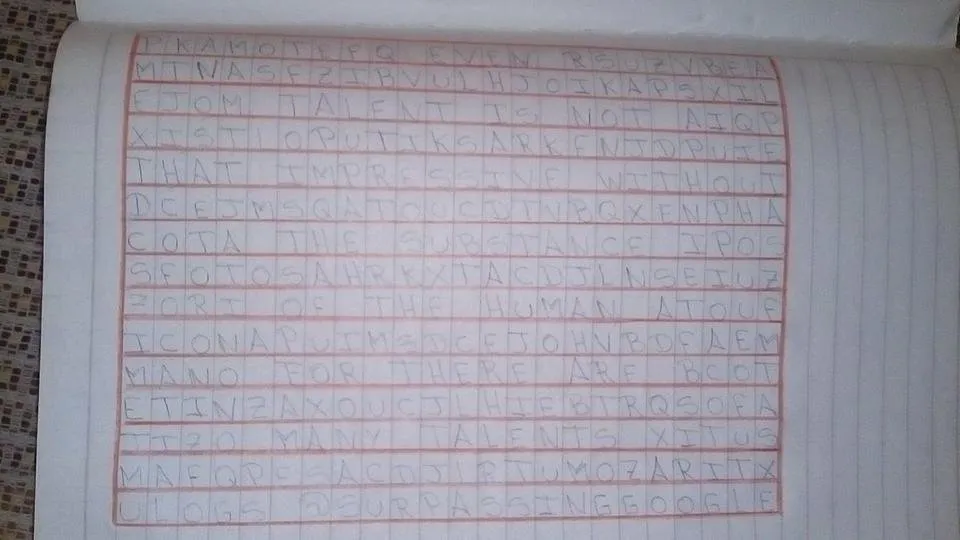 PKAMOTEFQ EVEN RSUZVBEA
MTNASFZIBVULHJOIKAPSXIL
EJOM TALENT IS NOT AIQP
XISTLOPUTIKSARKENTDPUIE
THAT IMPRESSIVE WITHOUT
DCEJMSQATOUCDTVBQXENPHA
COTA THE SUBSTANCE IPOS
SFOTOSAHRKXTACDJLNSEIUZ
ZORI OF THE HUMAN ATOUF
ICONAPUTMSDCEJOHVBDFAEM
MANO FOR THERE ARE BCOT
ETINZAXOUCJLHIFBTRQSOFA
TTZO MANY TALENTS XITUS
MAFQPESACDJLRTUMOZARITX
ULOGS @SURPASSINGGOOGLE